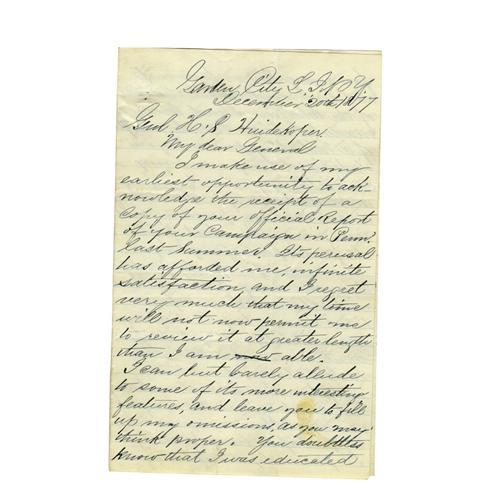 Garden City L. I. N Y
December 20th 1877
Genl H. S Huidekoper.
My dear General
I make use of my
earliest opportunity to ack-
nowledge the receipt of a
Copy of your Official Report
of your Campaign in Penna.
last Summer. Its perusal
has afforded me, infinite
satisfaction, and I regret
very much that my time
will not now permit me
to review it at greater length
than I am able.
I can but barely allude
to some of its more interesting
features, and leave you to fill
up my omissions, as you may
think proper. You doubtless
know that I was educated